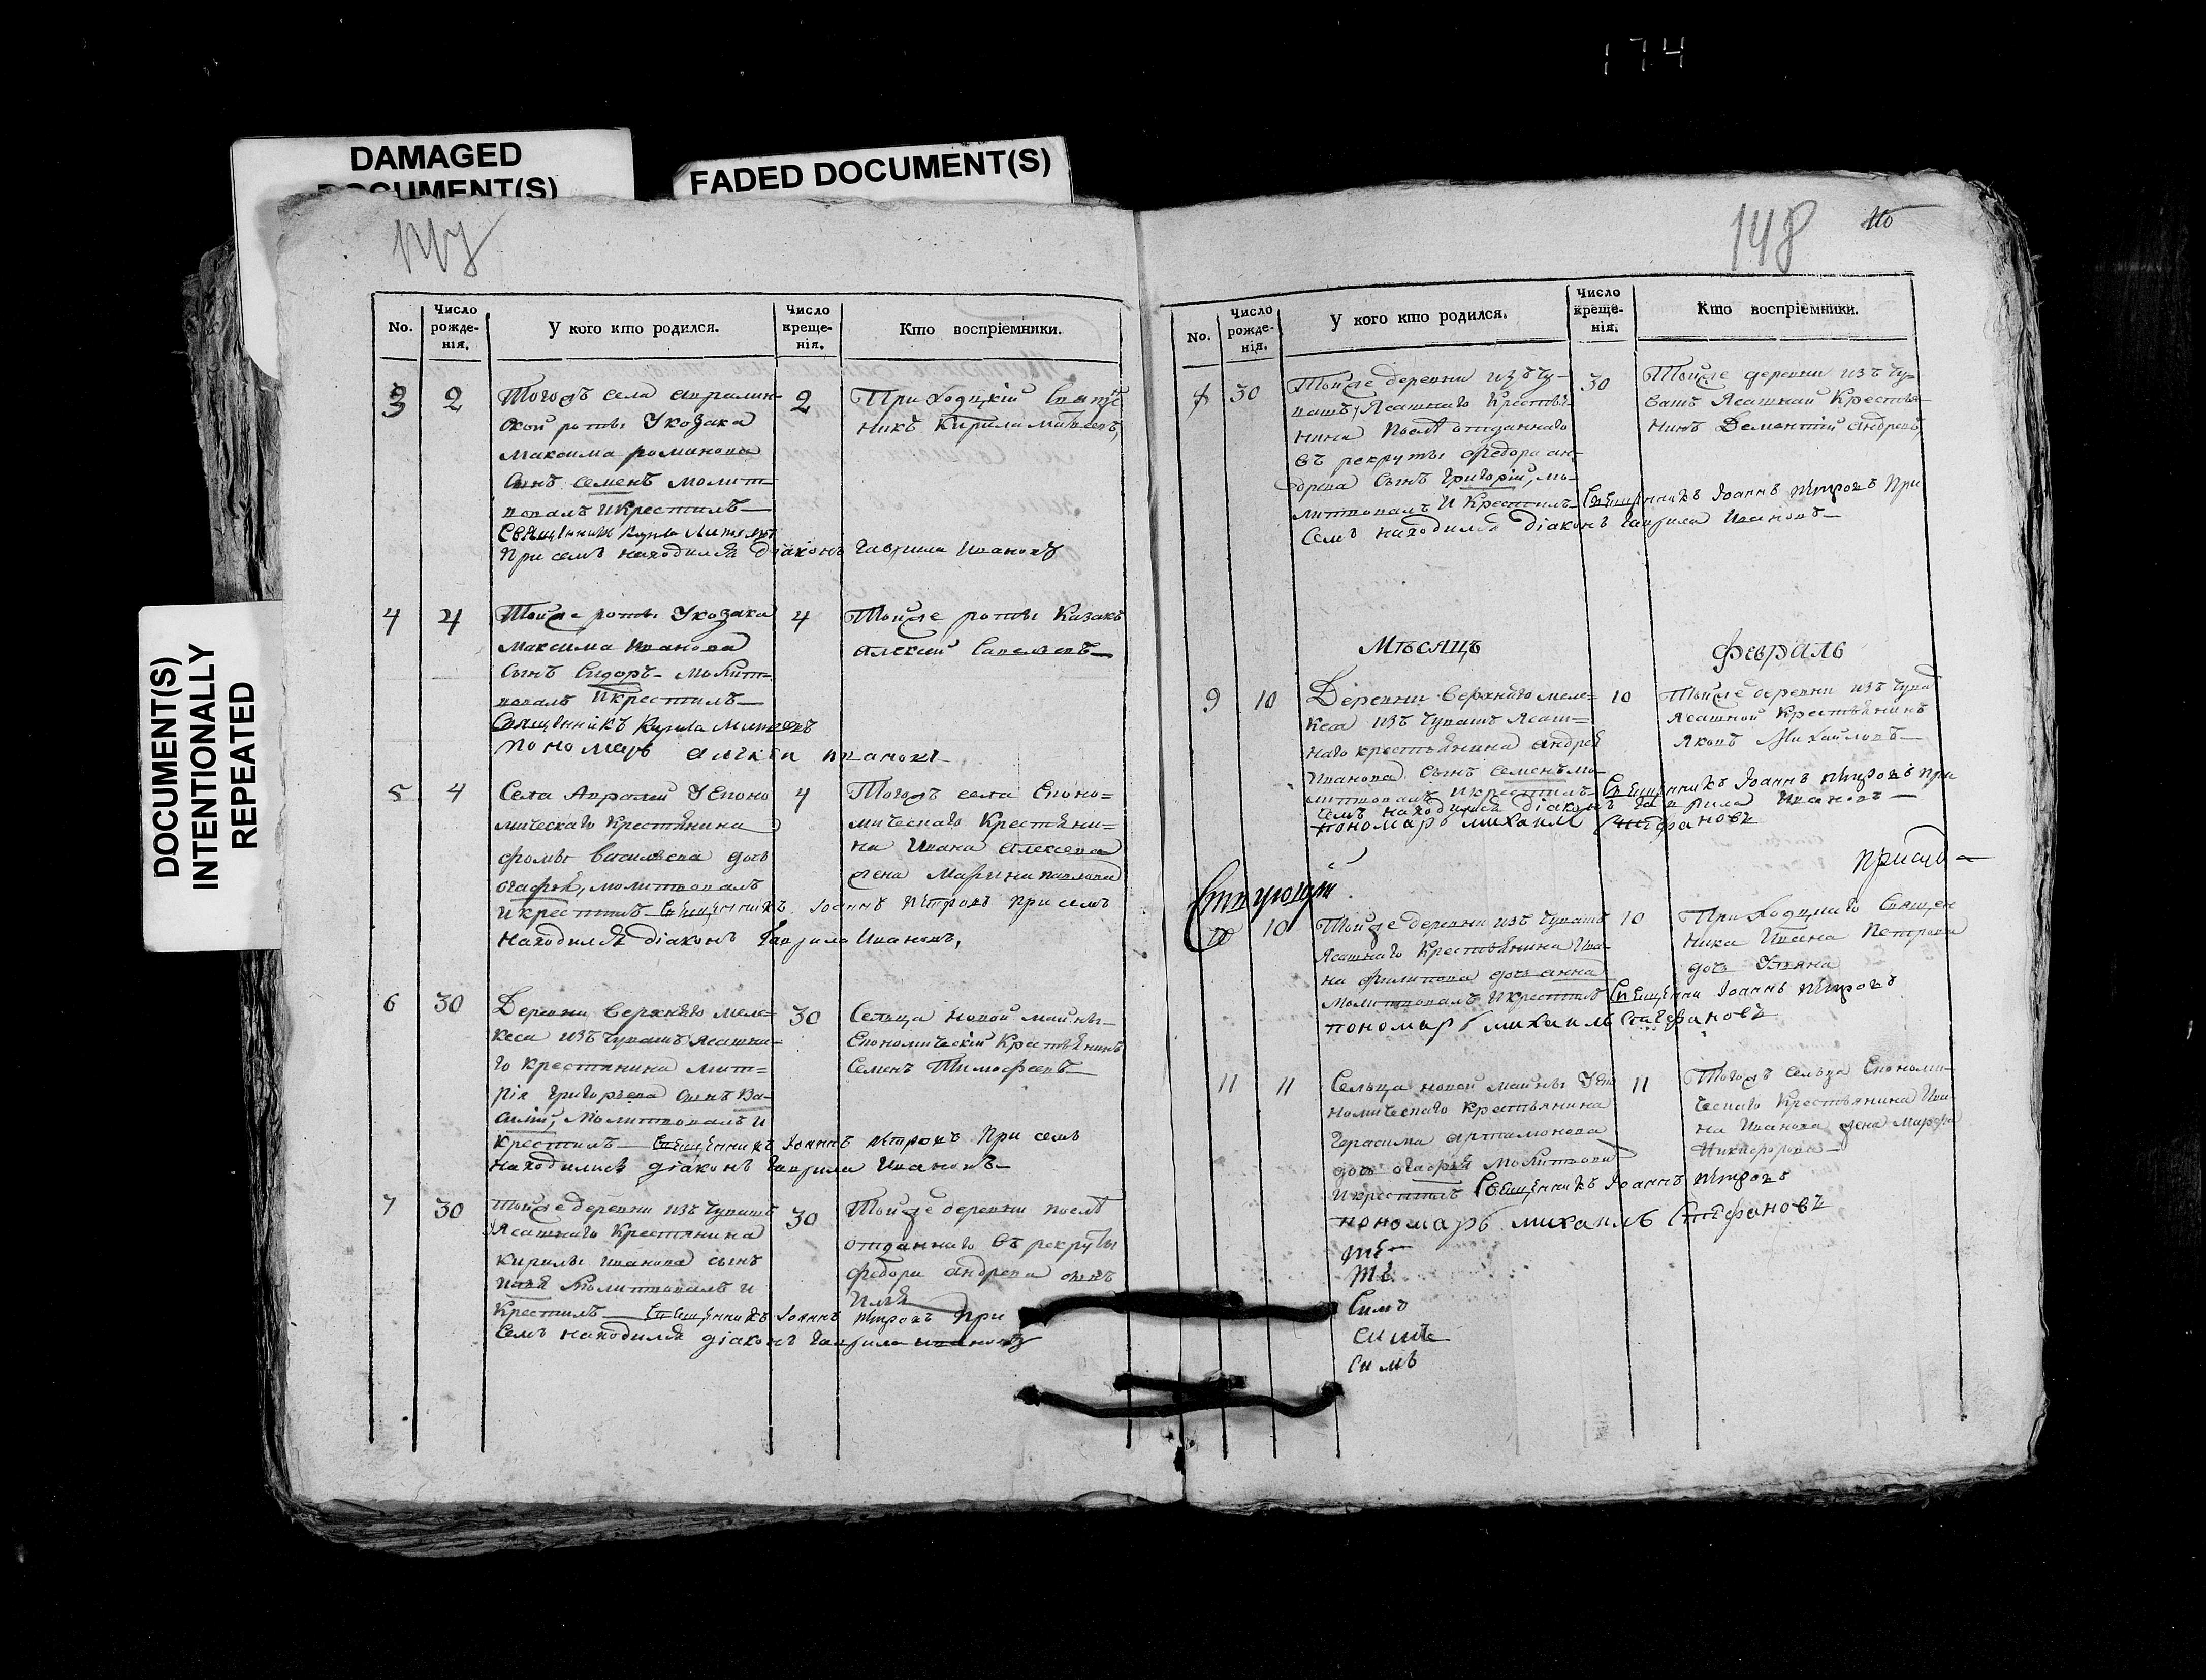 174
DAMAGED
DOCUMENT(S)
FADED DOCUMENT(S)
DOCUMENT(S)
INTENTIONALLY
REPEATED
No.
Число
рожде-
нія.
У кого кто родился.
Число
креще-
нія.
Кто воспріемники.
3
2
Тогожъ села
роты Укозака
Максима романова
Сынъ Семенъ молит=
вовалъ Икрестилъ—
Священникъ
При семъ находился діаконъ Гаврила Ивановъ
2
Приходцкій Свяще
никъ Кирила
4
4
Тойже роты Укозака
Максима Иванова
Сынъ Сидоръ- Молит=
вовалъ Икрестилъ—
Священникъ Кирила
Пономарь
4
Тойже роты Казакъ
Алексей Савельевъ—
5
4
Села УЕконо
мическаго Крестянина
фомы Васильева дочь
молитвовалъ
Икрестилъ Священникъ Іоаннъ Петровъ При семъ
находился діаконъ Гаврила Ивановъ,
4
Тогожъ села Еконо=
мическаго Крестьяни=
на Ивана Алексеева
жена Марина павлова
6
30
Деревни Верхняго Меле=
кеса изъ Чувашъ Ясашна=
го Крестянина Мит=
рія Григорьева Сынъ Ва=
силій, Молитвовалъ и
крестилъ— Священникъ Іоаннъ Петровъ При семъ
находился діаконъ Гаврила Ивановъ—
30
Сельца новой майны—
Економическій Крестьянинъ
Семенъ Тимофеевъ—
7
30
Тойже деревни изъ Чувашъ
Ясашнаго Крестянина
Кирилы Иванова сынъ
Молитвовалъ и
Крестилъ— Священникъ Іоаннъ Петровъ При
Семъ находился діаконъ Гаврила Ивановъ
30
Тойже деревни послѣ
отданнаго въ рекруты
федора андреева сынъ
Илья
148
No.
Число
рожде-
нія.
У кого кто родился.
Число
креще-
нія.
Кто воспріемники.
8
30
Тойже деревни изъ Чу-
вашъ, Ясашнаго Крестья-
нина Послѣ отданнаго
въ рекруты Федора ан-
дреева Сынъ Григорій, мо-
литвовалъ И Крестилъ- Священникъ Іоаннъ Петровъ При
Семъ находился діаконъ Гаврила Ивановъ—
30
Тойже деревни изъ Чу=
вашъ Ясашнай Крестья-
нинъ Дементій Андреевъ,
Мѣсяцъ
февраль
9
10
Деревни Верхняго меле=
кеса изъ Чувашъ Ясаш=
наго крестьянина Андрея
Иванова сынъ Семенъ мо-
литвовалъ Икрестилъ Священникъ Іоаннъ Петровъ При
Семъ находился діаконъ Гаврила Ивановъ—
пономарь михаилъ Стефановъ
10
Тойже деревни изъ Чува
Ясашной Крестьянинъ
Яковъ Михайловъ—
10
10
Тойже деревни изъ Чувашъ
Ясашнаго Крестьянина Ива-
на филипова дочь анна
Молитвовалъ Икрестилъ Священни Іоаннъ Петровъ
пономарь михаилъ Стефановъ
10
Приходцкаго Священ
ника Ивана Петрова
дочь Ульяна
11
11
Сельца новой майны УЕко
номическаго крестьянина
Герасима Артамонова
дочь Молитвовал
Икрестилъ Священникъ Іоаннъ Петровъ
пономарь михаилъ Стефановъ
11
Тогожъ сельца Економи-
ческаго Крестьянина Ива-
на Иванова жена Марфа
Никифорова—